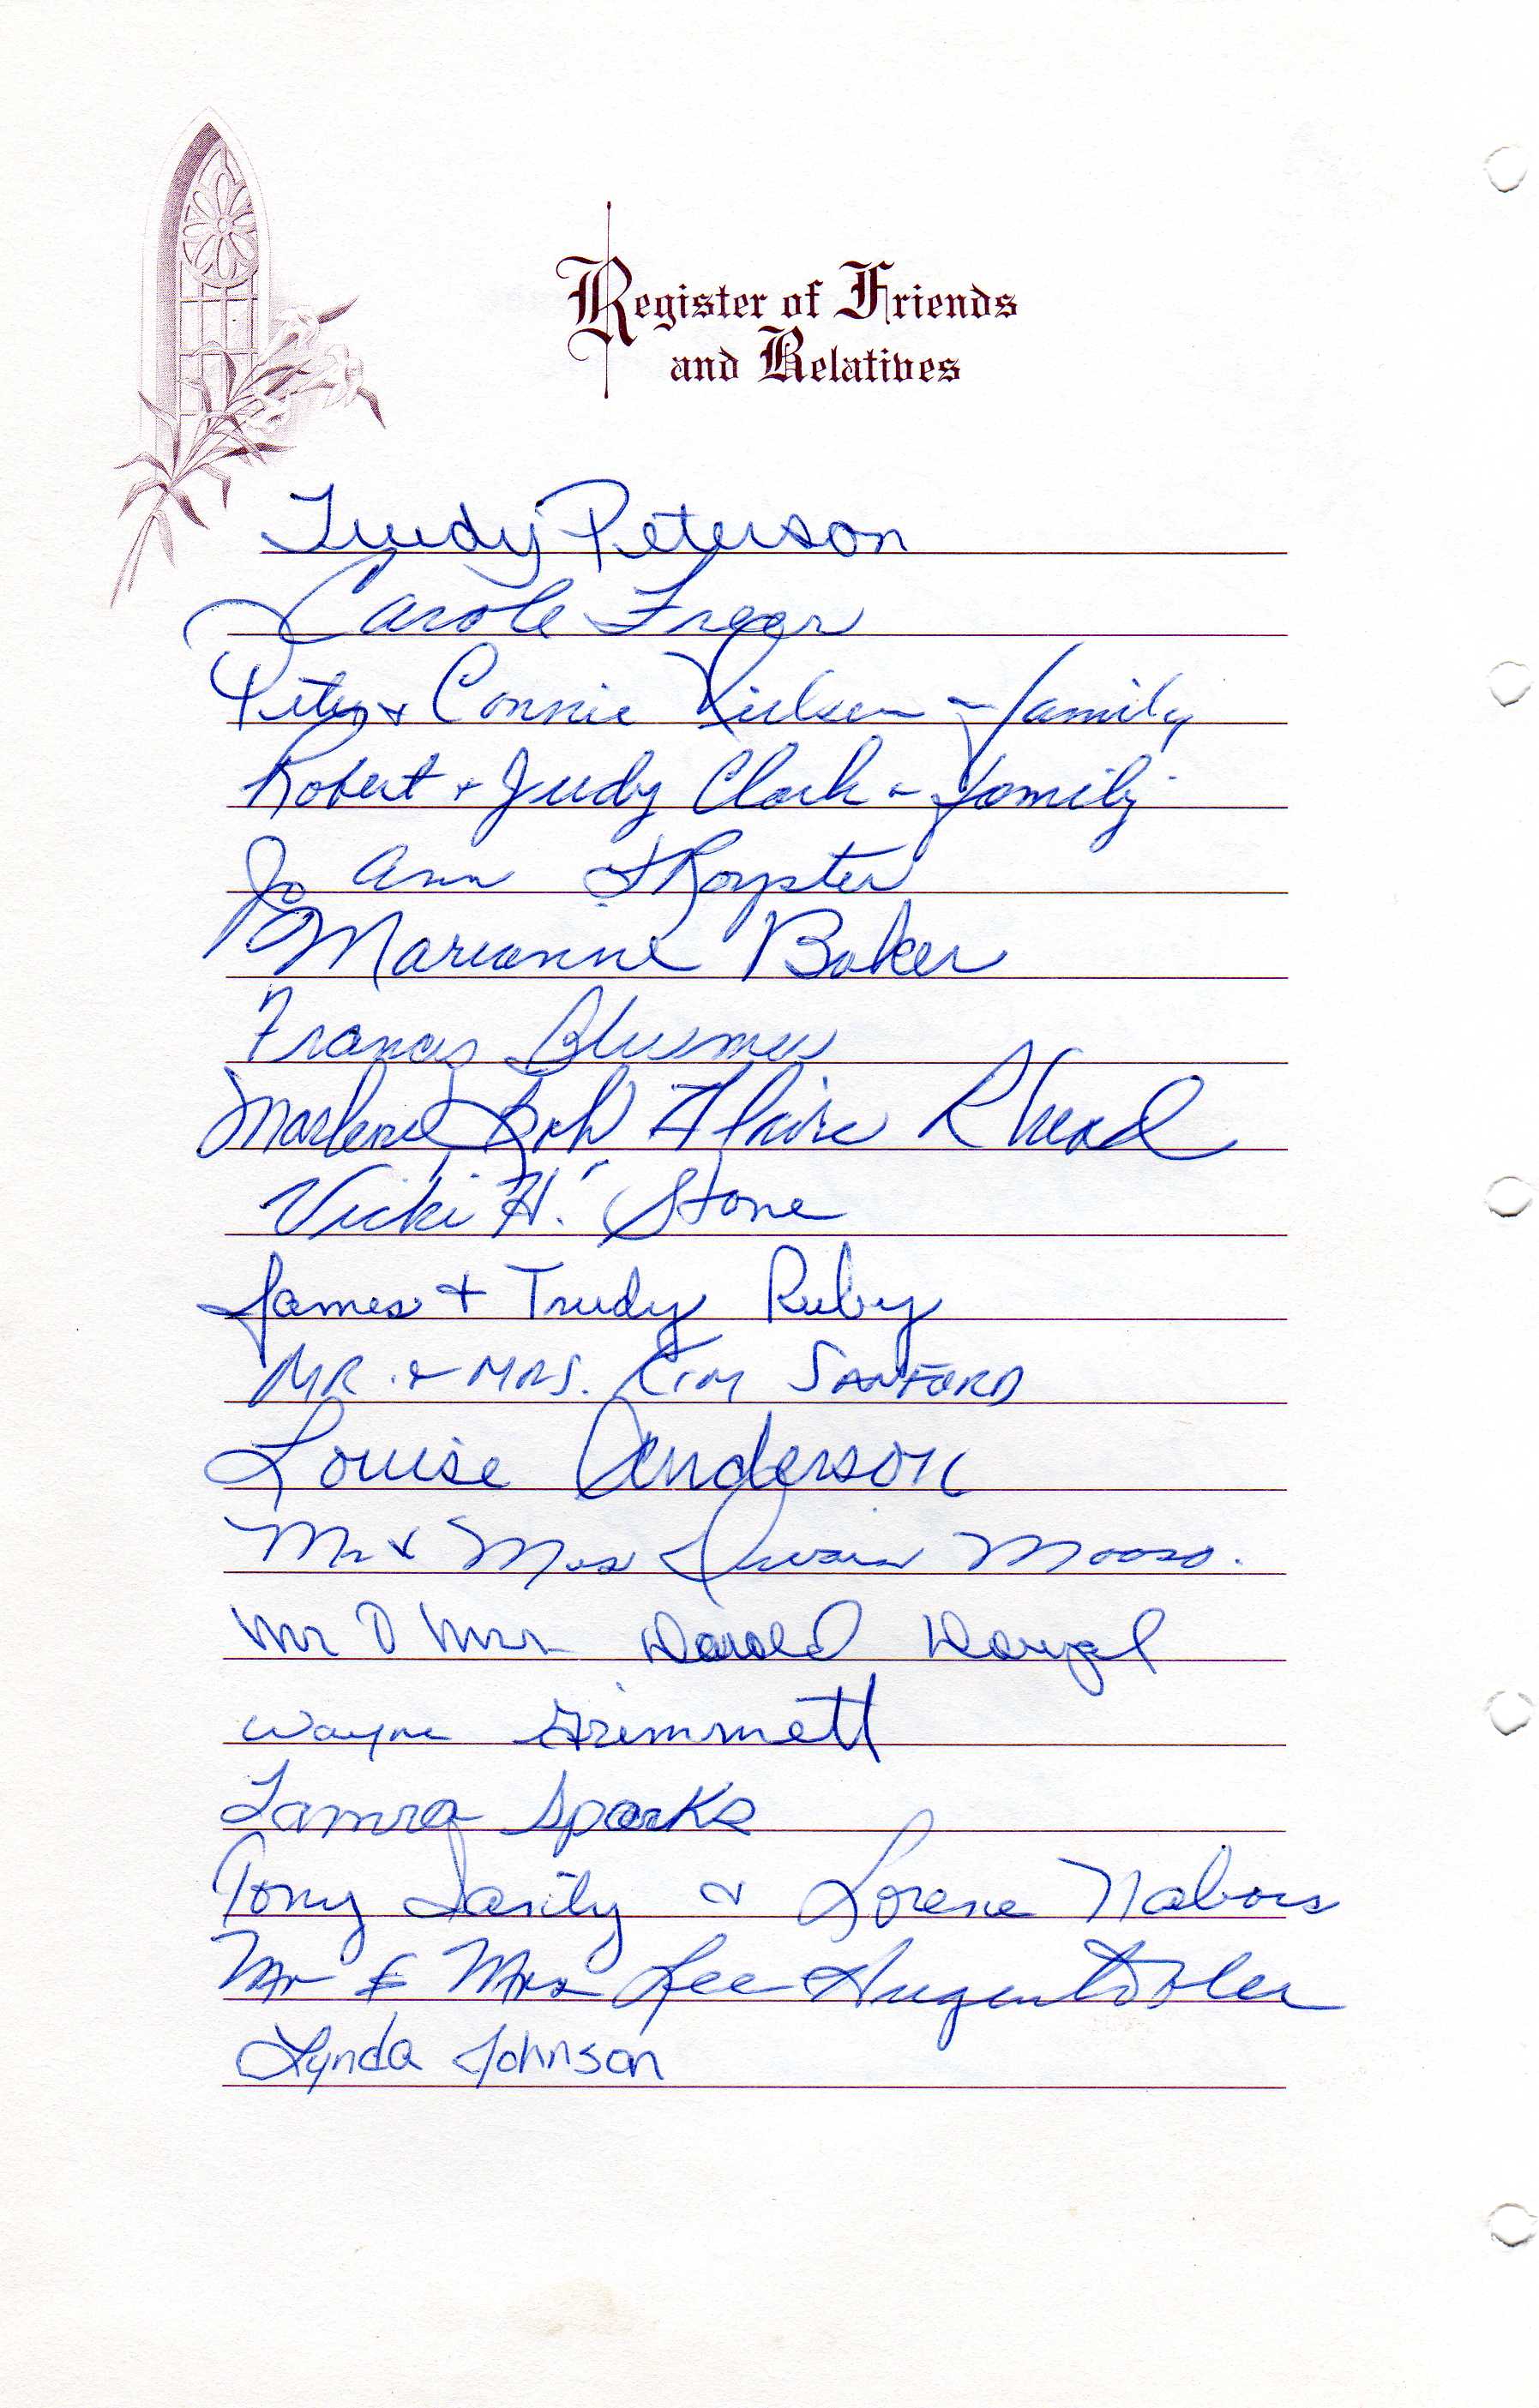 Register of Friends
and Relatives
Trudy Peterson
Carole Freer
Peter + Connie Nielsen & family
Robert + Judy Clark & family
Jo Ann Royster
Marianne Baker
Francis
Marlene Bob Claire Rhead
Vicki H. Stone
James + Trudy Ruby
MR. & MRS. KIM SANFORD
Louise Anderson
Mr & Mrs Dwain Mooso.
Mr & Mrs Darold
Wayne Grimmett
Tamra Sparks
Tony & Lorene Nabors
Mr & Mrs Lee Hugentobler
Lynda Johnson